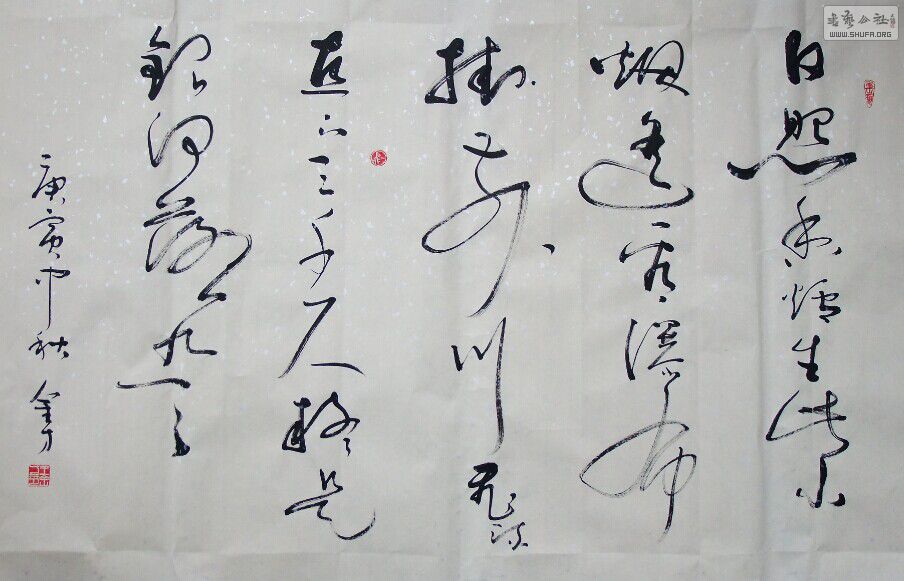 書藝公社
WWW.SHUFA.ORG
日照香爐生紫
烟遥看瀑布
掛前川飛流
直下三千尺疑是
銀河落九天
庚寅中秋